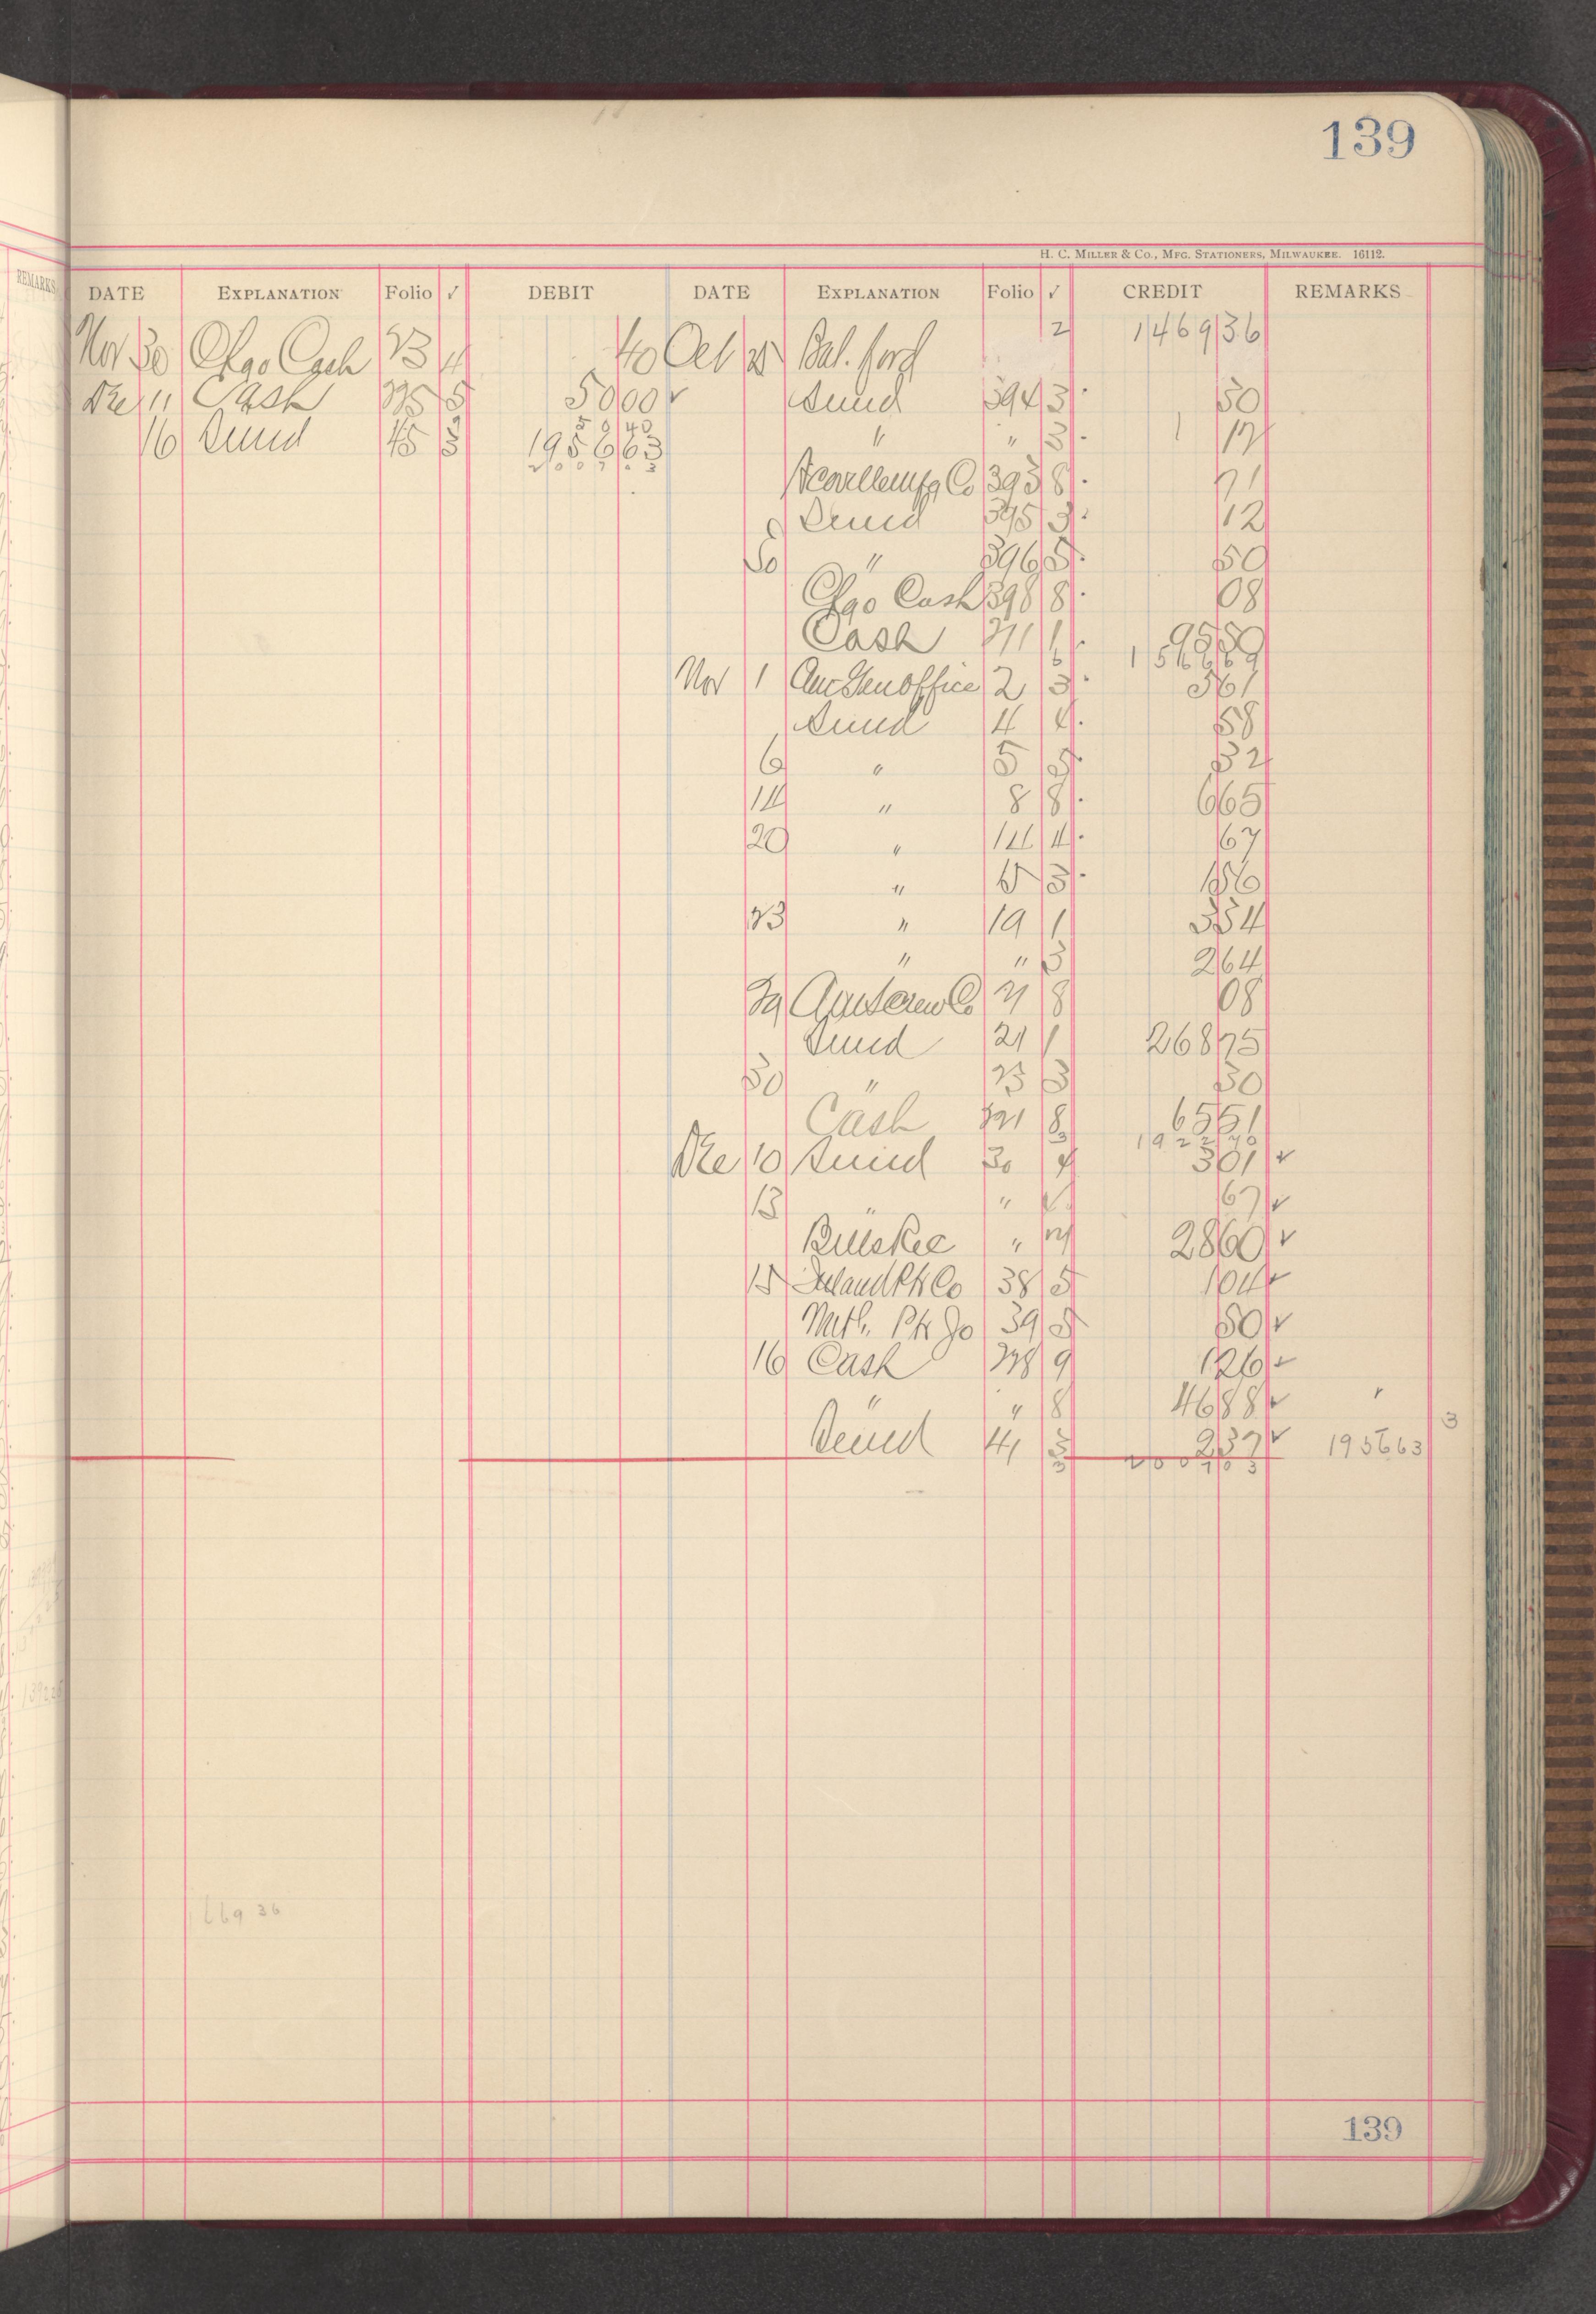 139
H. C. MILLER & CO., MFG. STATIONERS, MILWAUKEE. 16112.
DATE EXPLANATION Folio ✓ DEBIT DATE EXPLANATION Folio ✓ CREDIT REMARKS
Nov 30 Chgo Cash 23 4 40 Oct 25 Bal. ford 2 1469 36
Dec 11 Cash 5 50 00 Sund 394 3 50
50 40
16 Sund 45 3 1956 63 " " 3 1 17
2007 03
Co 393 8 71
Sund 395 3 12
30 " 396 5 50
Chgo Cash 398 8 08
Cash 1 95 50
1566 89
Nov 1 Am Gen Office 2 3 3 61
Sund 4 4 58
6 " 5 5 32
14 " 8 8 6 65
20 " 14 4 67
" 15 3 1 86
23 " 19 1 3 54
" " 3 2 64
29 21 8 08
Sund 21 1 268 75
30 " 23 3 50
Cash 8 65 51
1922 40
Dec 10 Sund 30 4 3 01
13 " " 67
Bills Rec " 28 60
15 Inland Pk Co 38 5 1 04
Natl. Pk Co 39 5 50
16 Cash 9 1 26
" " 8 46 88
3
Sund 41 3 2 37 1956 63
3 2007 03
669 36
139